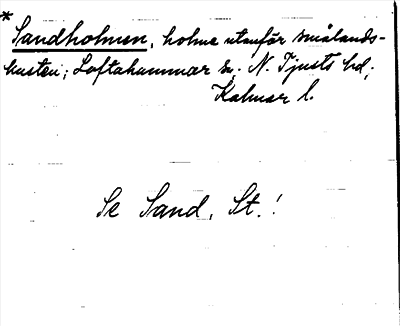 *
Sandholmen, holme utanför smålands-
kusten; Loftahammar sn. N. Tjusts hd;
Kalmar l.
Se Sand, St.!